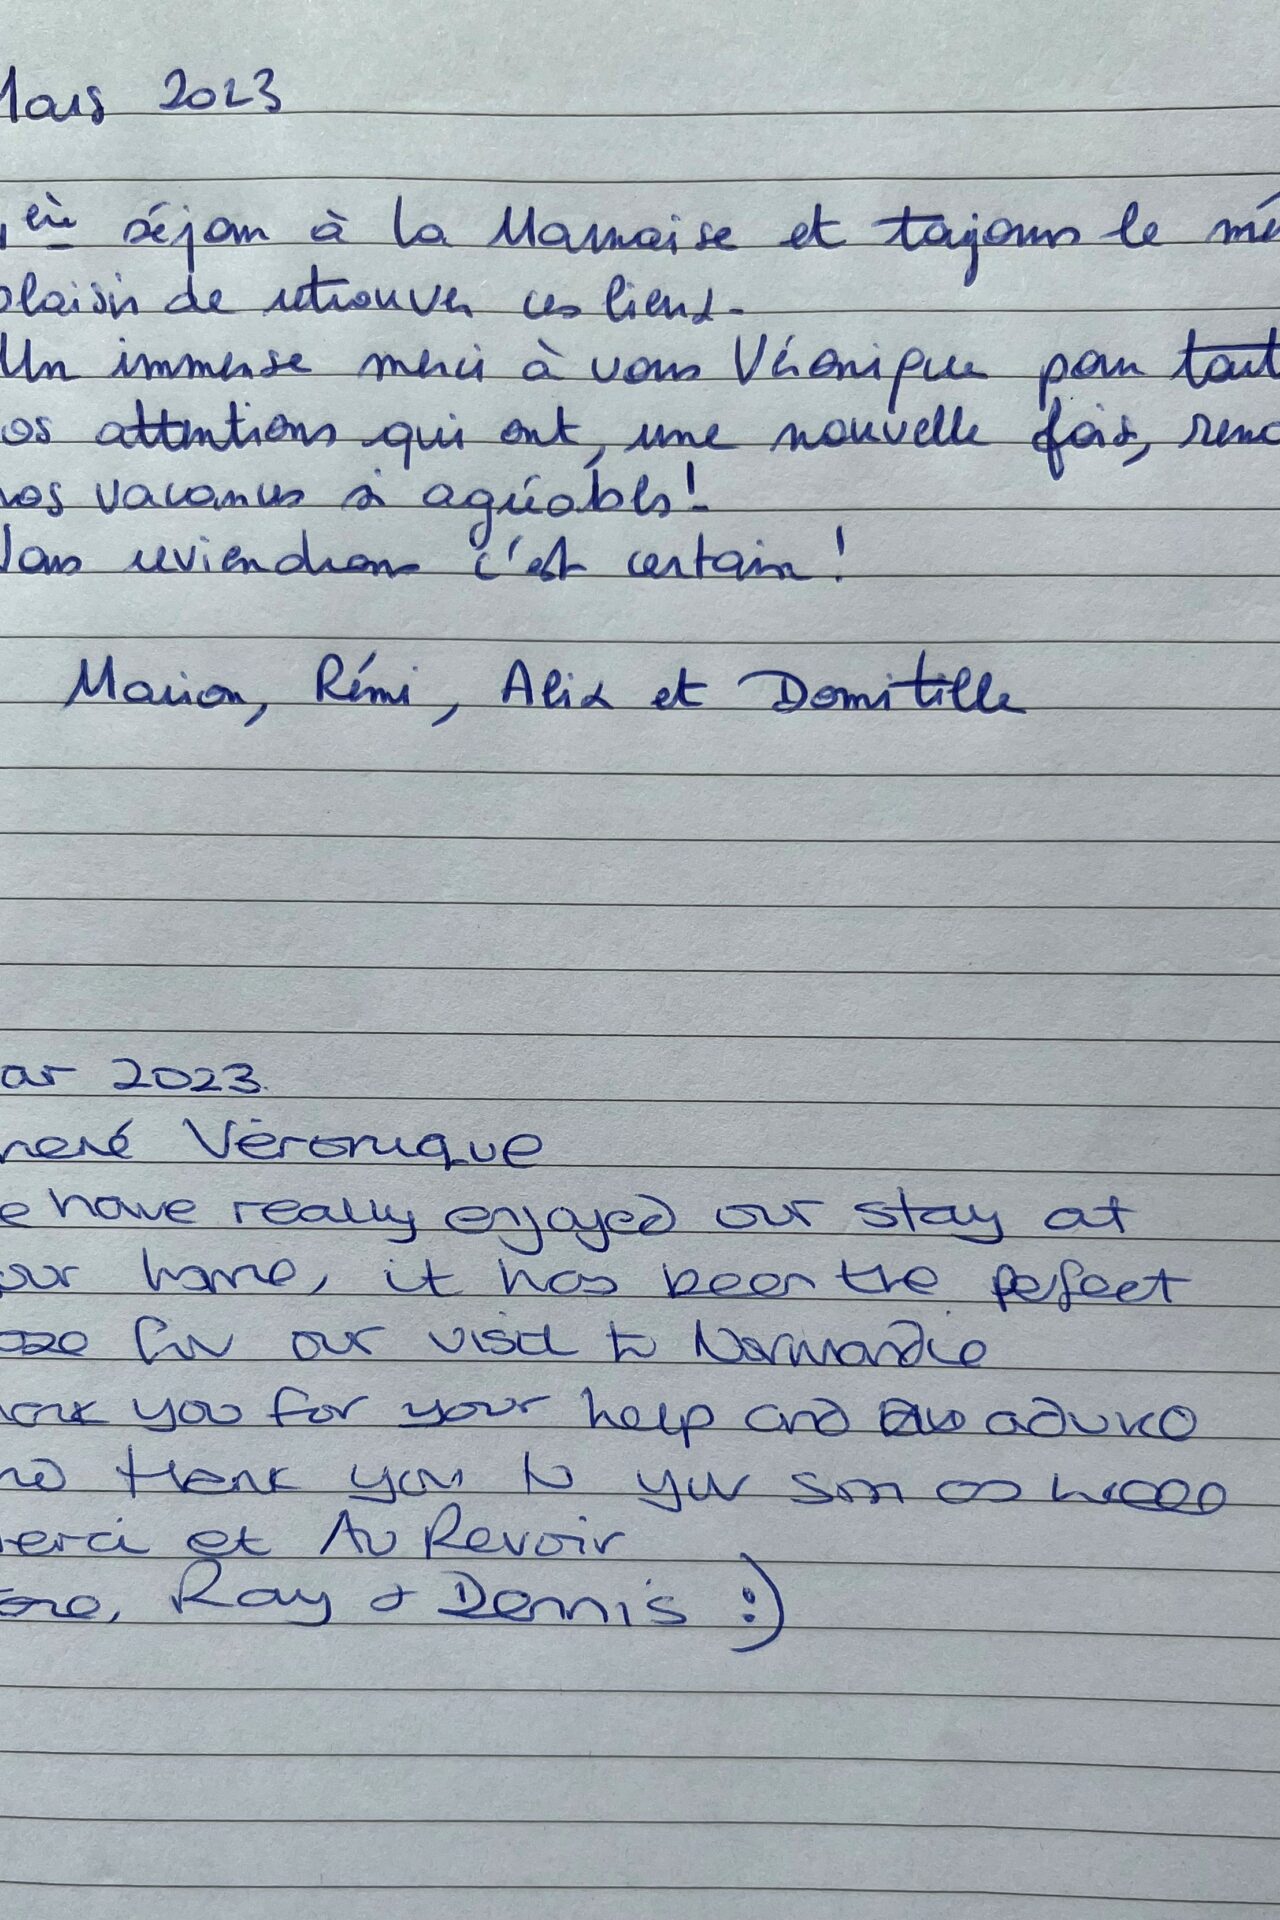 Mars 2023
séjour à la Marnaise et toujours le mê
plaisir de retrouver ces lieux.
Un immense merci à vous Véronique pour tout
os attentions qui ont, une nouvelle fois, rend
nos vacances si agréables!
Nous reviendrons c'est certain!
Marion, Rémi, Alix et Domitille
ar 2023.
Véronique
e have really enjoyed our stay at
our home, it has been the perfect
for our visit to Normandie
you for your help and advice
thank you to your son as well
erci et Au Revoir
Ray + Dennis :)